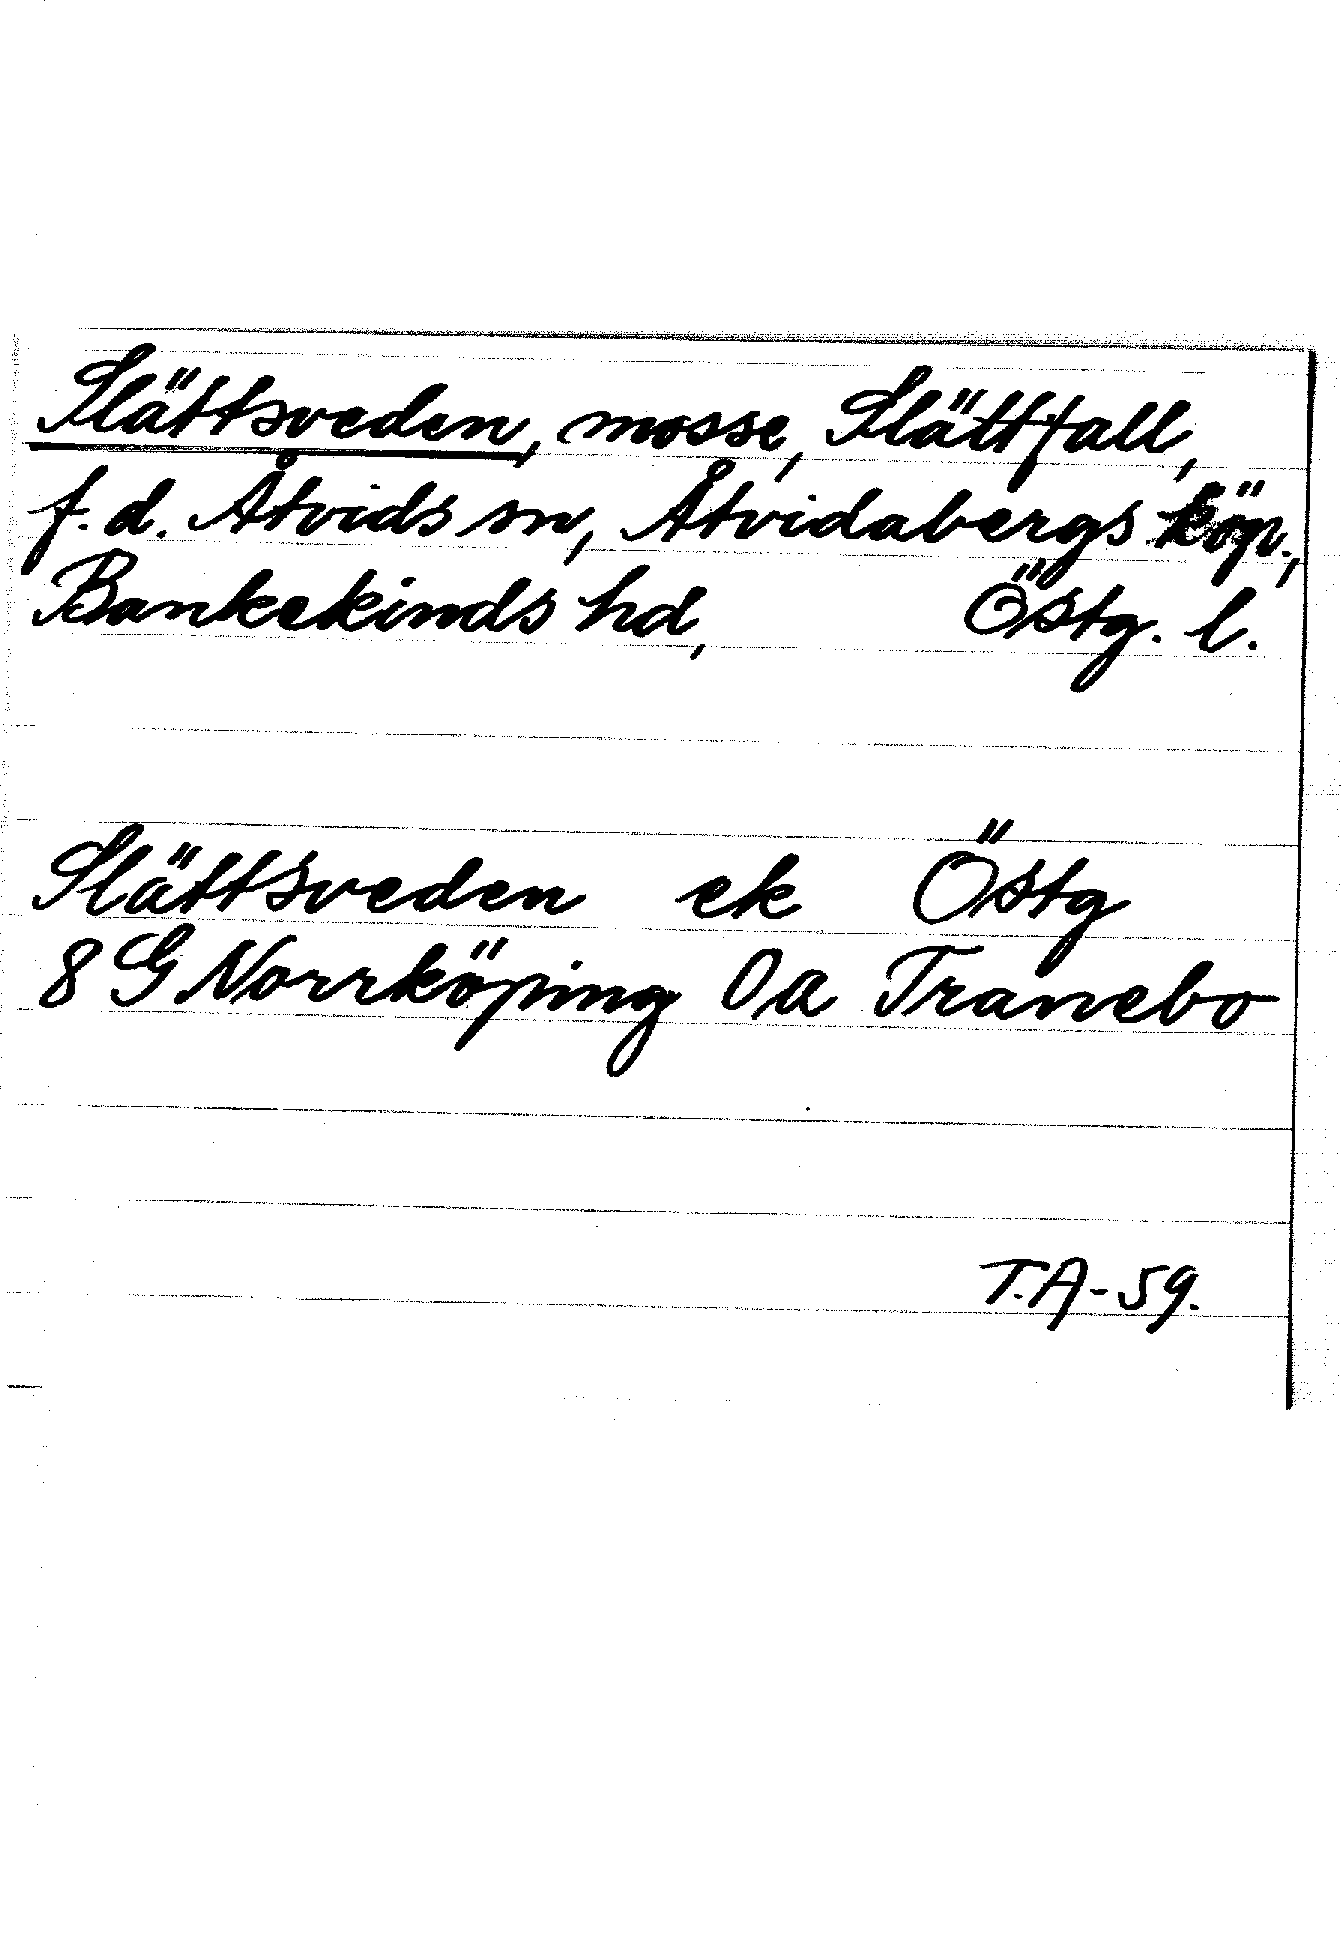 Slättsveden, mosse, Slättfall,
f.d. Åtvids sn, Åtvidabergs köp.,
Bankekinds hd, Östg. l.
Slättsveden ek Östg
8 G Norrköping 0a Tranebo
T.A-59.